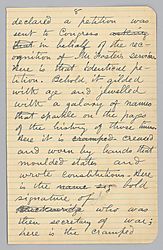 8
declared a petition was
sent to Congress
that in behalf of the rec-
ognition of Mr Foster's service
Here is that identical pe-
tition. Behold it gilded
with age and jewelled
with a galaxy of names
that sparkle on the pages
of the history of those times
here it is cramped creased
and worn by hands that
moulded states and
wrote constitutions. Here
is the name bold
signature of
who was
then secretary of war;
here is the cramped